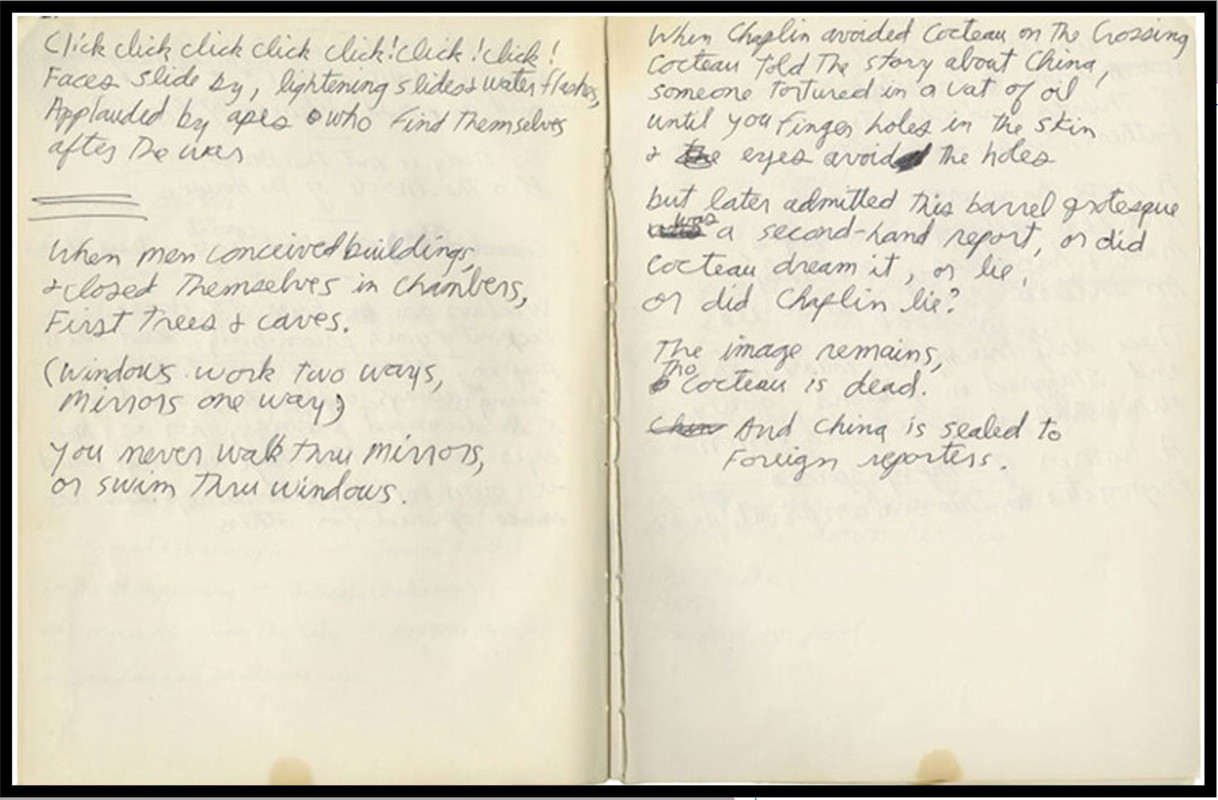 Click click click click click! Click! click!
Faces slide by, lightening slides & water flashes,
Applauded by apes who find Themselves
after The war
When men conceived buildings,
& closed Themselves in chambers,
First Trees & caves.
(Windows work two ways,
mirrors one way;)
You never walk thru mirrors,
or swim Thru windows.
When Chaplin avoided Cocteau on The Crossing
Cocteau Told The story about China,
someone Tortured in a vat of oil
until you finger holes in the skin
& eyes avoid The holes
but later admitted This barrel grotesque
was a second-hand report, or did
Cocteau dream it, or lie,
or did Chaplin lie?
The image remains,
Tho Cocteau is dead.
And China is sealed to
Foreign reporters.